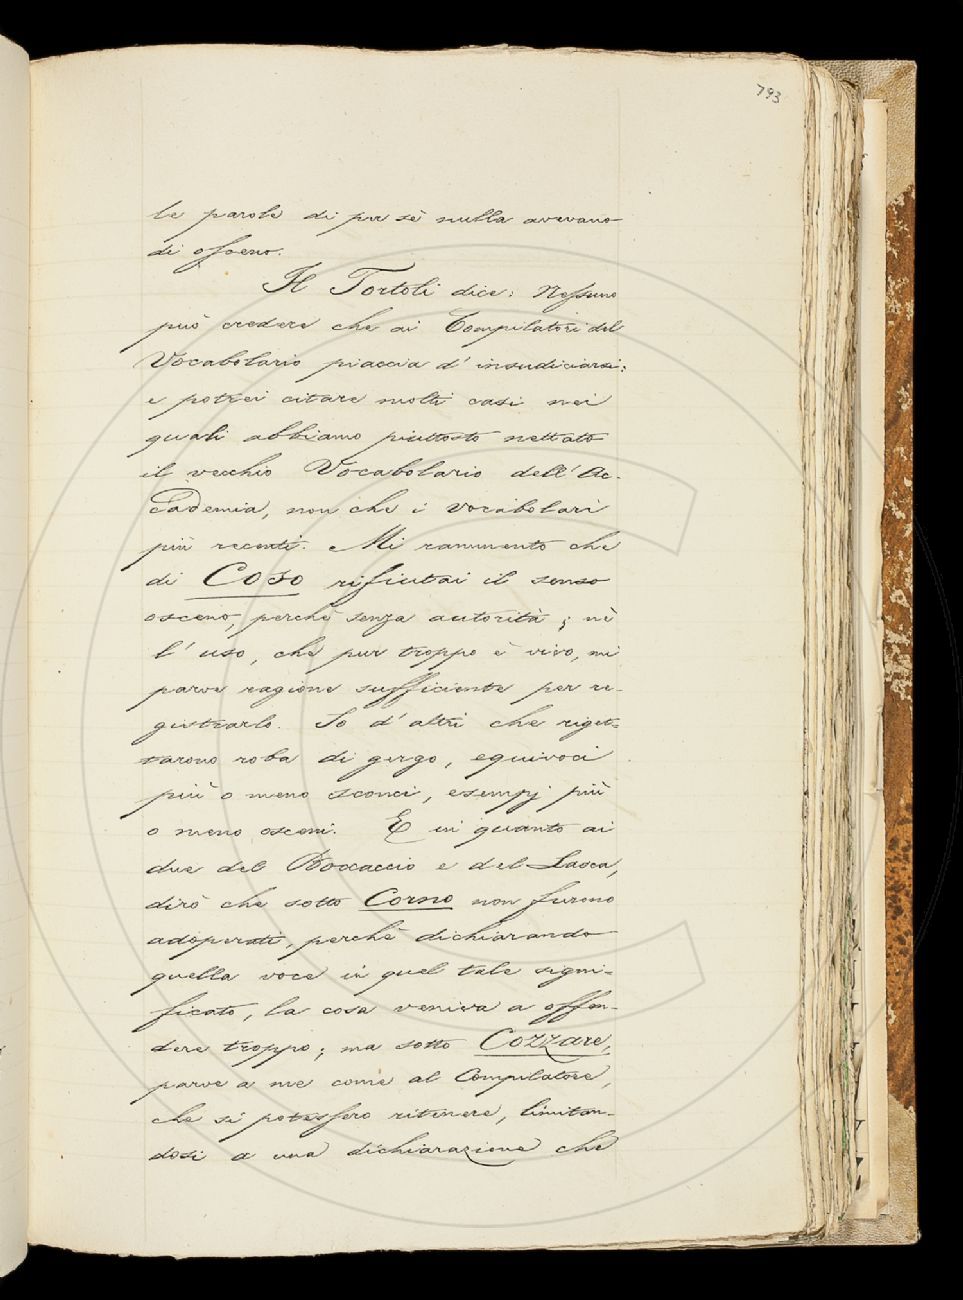 793
le parole di per sè nulla avevano
di osceno.
Il Tortoli dice: Nessuno
può credere che ai Compilatori del
Vocabolario piaccia d'insudiciarsi:
e potrei citare molti casi nei
quali abbiamo piuttosto nettato
il vecchio Vocabolario dell'Ac-
cademia, non che i vocabolari
più recenti. Mi rammento che
di Coso rifiutai il senso
osceno, perchè senza autorità; nè
l'uso, che pur troppo è vivo, mi
parve ragione sufficiente per re-
gistrarlo. So d'altri che riget-
tarono roba di gergo, equivoci
più o meno sconci, esempj più
o meno osceni. E in quanto ai
due del Boccaccio e del Lasca,
dirò che sotto Corno non furono
adoperati, perchè dichiarando
quella voce in quel tale signi-
ficato, la cosa veniva a offen-
dere troppo; ma sotto Cozzare,
parve a me come al Compilatore,
che si potessero ritenere, limitan-
dosi a una dichiarazione che